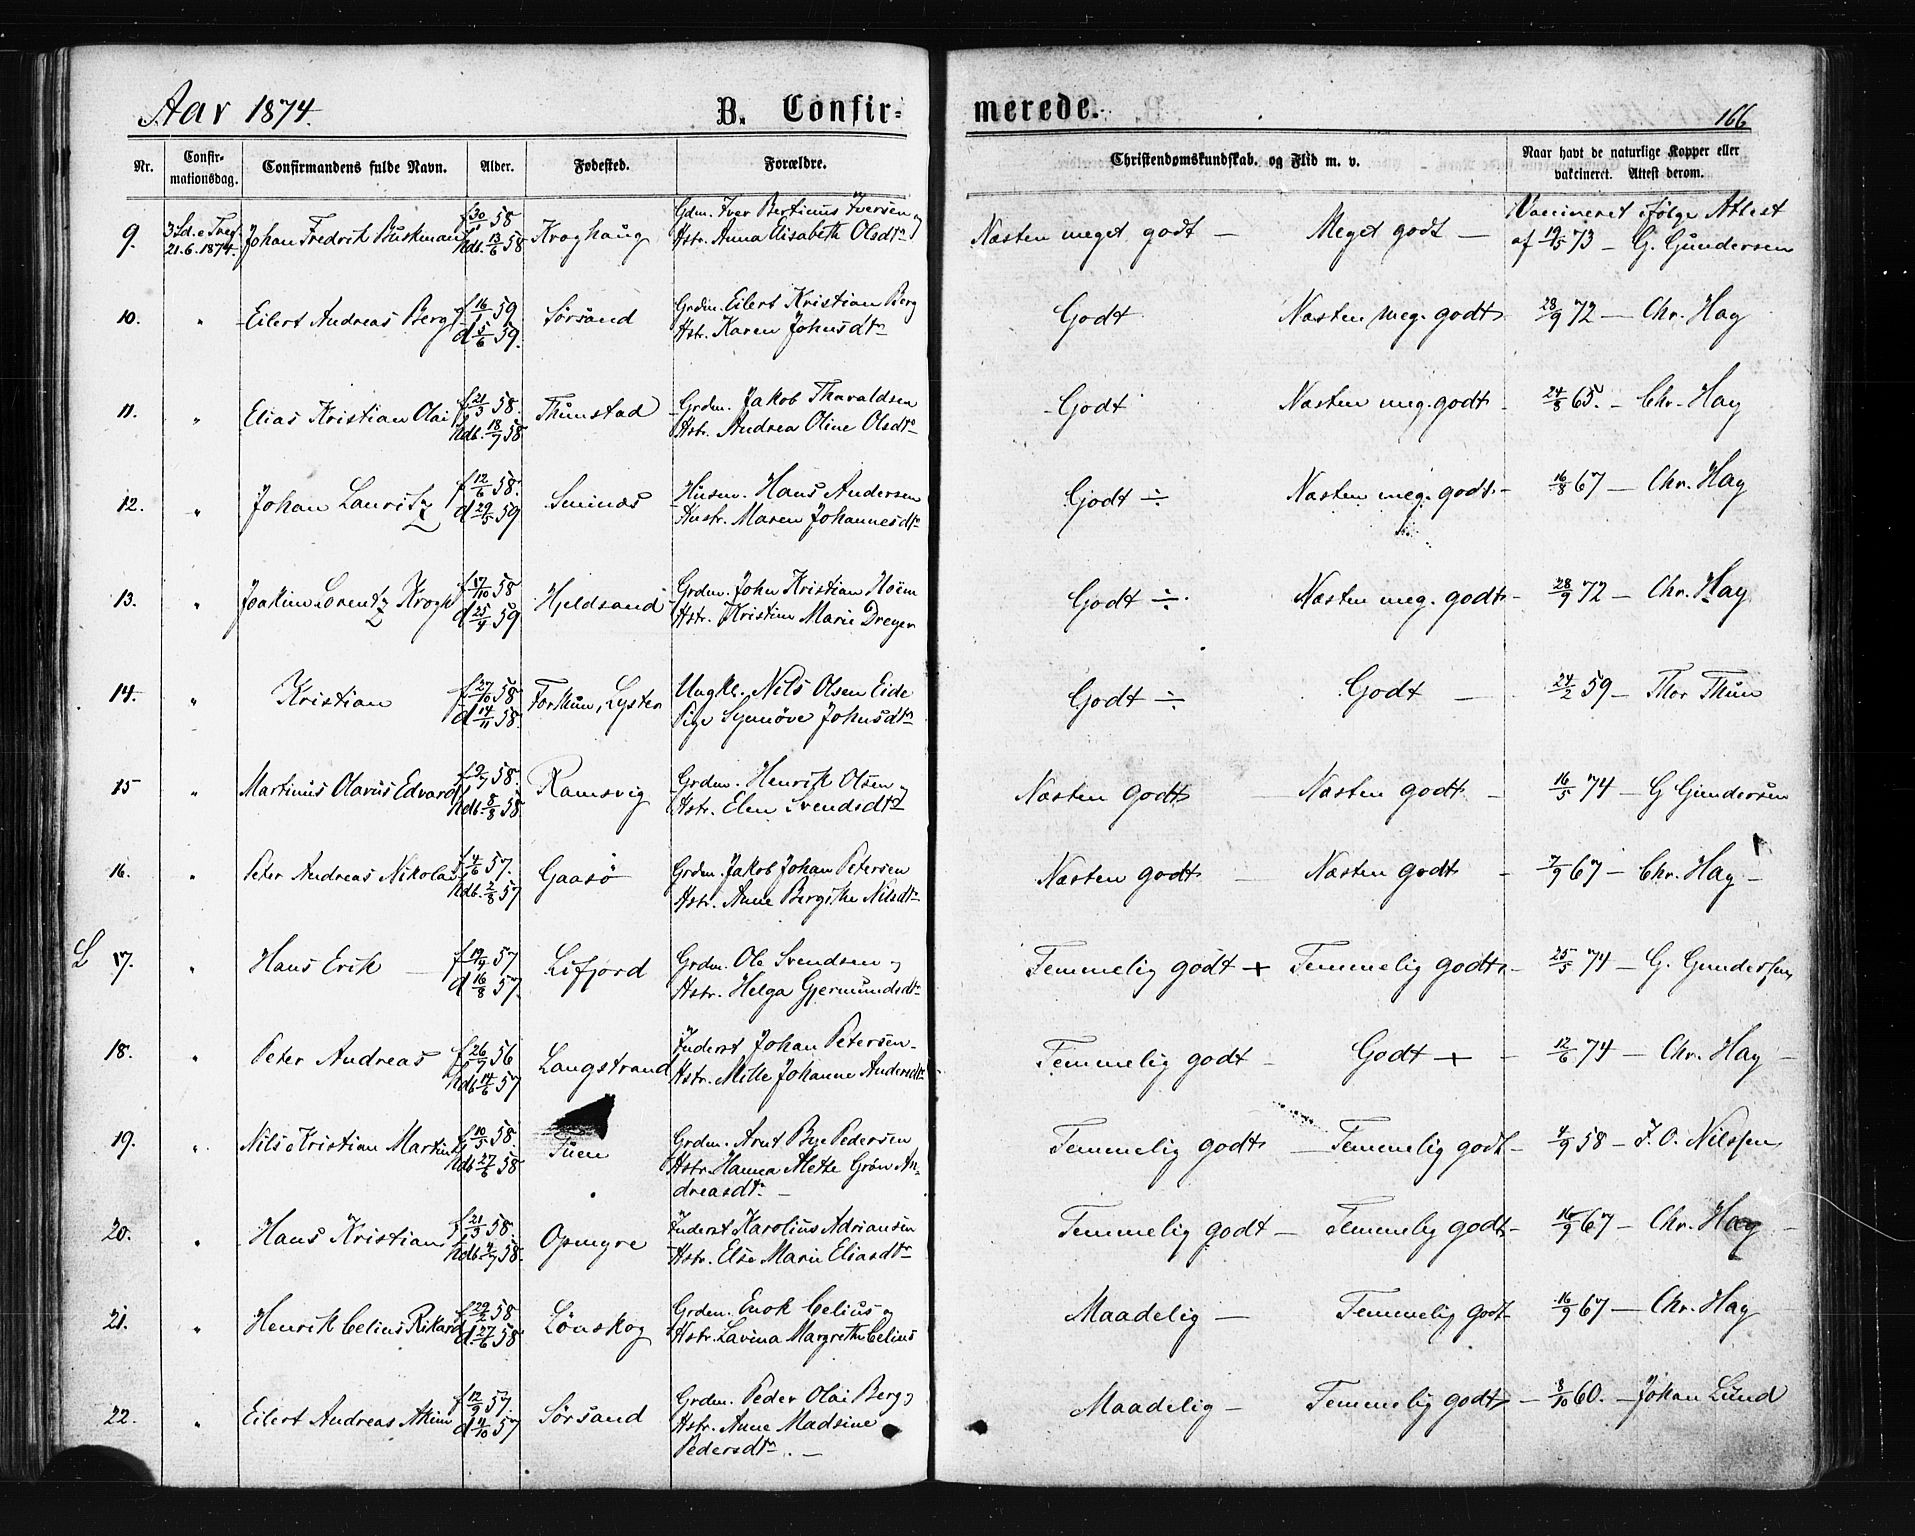 Aar 1874. B. Confir- merede. 166
Nr. Confir-mationsdag. Confirmandens fulde Navn. Alder. Fødested. Forældre. Christendomskundskab, og Flid m. v. Naar havt de naturlige Kopper eller vakcineret. Attest derom.
9. 3 Sd. e Tref. 21.6.1874. Johan Fredrik f 30 58 hdb. 13/6 58 Kroghaug Gdm. Iver Bertinus Iversen og
Hstr. Anna Elisabeth Olsdtr Næsten meget godt — Meget godt — Vaccineret ifølge Attest
af 19/5 73 — G. Gundersen
10. " Eilert Andreas Berg f 16/1 59 d 5/6 59. Sørsand Grdm. Eilert Kristian Berg
Hstr. Karen Johnsdtr Godt Næsten meg. godt 28/9 72 — Chr. Hay
11. " Elias Kristian Olai f 21/5 58. hdb. 18/7 58 Thunstad Grdm. Jakob Tharaldsen
Hstr. Andrea Oline Olsdtr Godt Næsten meg. godt - 24/8 65. - Chr. Hay
12. " Johan Lauritz f 12/6 58. d 29/5 59 Sminæs Husm. Hans Andersen
Hustr. Maren Johannesdtr Godt ÷ Næsten meg. godt - 16/8 67 — Chr. Hay
13. " Joakim Lorentz Krogh f 17/10 58 d 25/4 59 Hjeldsand Grdm. John Kristian Hoem
Hstr. Kristine Marie Dreyer Godt ÷ Næsten meg. godt - 28/9 72 — Chr. Hay
14. " Kristian f 27/10 58 d 14/11 58. Forthun, Lyster Ungkl. Nils Olsen Eide
Pige Synnöve Johnsdtr Godt ÷ Godt — 24/2 59 — Thor Thun
15 " Martinus Olavus Edvard f 9/7 58. hdb. 8/8 58 Ramsvig Grdm. Henrik Olsen og
Hstr. Elen Svendsdtr Næsten godt — Næsten godt - 16/5 74 — G Gundersen
16. " Peter Andreas Nikolai f 4/6 57. hdb. 2/8 57 Gaasø Grdm. Jakob Johan Petersen
Hstr. Anne Bergithe Nilsdtr Næsten godt — Næsten godt - 7/9 67 — Chr. Hay —
L 17. " Hans Erik — f 19/9 57 d 16/8 57. Lifjord Grdm. Ole Svendsen og
Hstr. Helga Gjermundsdtr Temmelig godt + Temmelig godt - 25/5 74 — G. Gundersen
18. " Peter Andreas f 26/7 56 hdb 14/6 57 Langstrand Inderst Johan Petersen
Hstr. Mette Johanne Andersdtr Temmelig godt — Godt + - 12/6 74 — Chr. Hay —
19. " Nils Kristian Martin f 10/5 58. hdb 27/6 58 Tuen Grdm. Arnt Bye Pedersen
Hstr. Hanna Mette Grøn An-
dreasdtr — Temmelig godt — Temmelig godt - 4/9 58 — J. O. Nilssen
20. " Hans Kristian f 21/3 58. hdb. 4/7 58. Opmyre Inderst Karolius Adriansen
Hstr. Else Marie Eliasdtr Temmelig godt — Temmelig godt - 16/9 67 — Chr. Hay —
21. " Henrik Celius Rikard f 29/2 58 d. 27/6 58 Lønskog Grdm. Enok Celius og
Hstr. Lavina Margrethe Celius Maadelig — Temmelig godt - 16/9 67 — Chr. Hay
22. " Eilert Andreas f 12/9 57. d 4/10 57 Sørsand Grdm. Peder Olai Berg og
Hstr. Anne Madsine
Pedersdtr. — Maadelig — Temmelig godt — 8/10 60. — Johan Lund